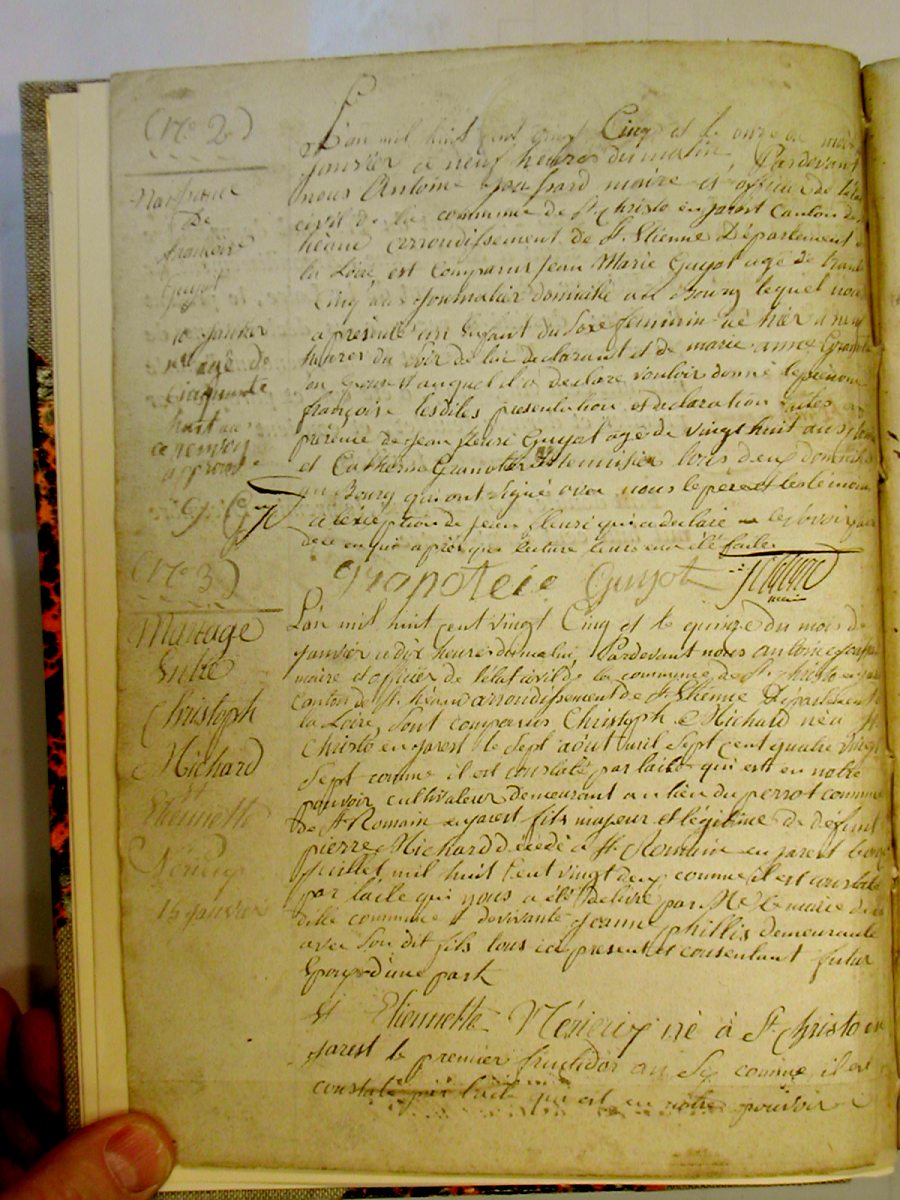 (No 2)
Naissance
De
françoise
Guyot
10 janvier
L'an mil huit cent vingt Cinq et le onze du mois
janvier a neuf heures du matin, Pardevant
nous Antoine Joussard maire et officier de l'état
civil de la commune de St Christo en jarest Canton de St
héand arrondissement de St Etienne Département de
la Loire est comparus Jean Marie Guyot agé de trente
Cinq ans journalier domicilié au Bourg lequel nous
a présenté un Enfant du Sexe feminin né hier a neuf
heures du soir de lui declarant et de marie anne
son Epouse et auquel il a declaré vouloir donné le prénom
françoise lesdites presentation et declaration faites en
présence de Jean fleuri Guyot agé de vingt huit ans
et Catherine tous deux domiciliés
au Bourg qui ont signé avec nous le pere et les temoins
a l'exception de jean fleuri qui a déclaré ne le savoir faire
de ce enquis après que lecture leur a été faite
Guyot
(No 3)
Mariage
Entre
Christoph
Michard
et
Etiennette
Mérieux
15 janvier
L'an mil huit cent vingt Cinq et le quinze du mois de
janvier a dix heure du matin, Pardevant nous antoine Joussard
maire et officier de l'état civil de la commune de St Christo en jarest
Canton de St héand arrondissement de St Etienne Département de
la Loire, sont comparus Christoph Michard né a St
Christo en jarest le sept août mil sept cent quatre vingt
sept comme il est constaté par l'acte qui est en notre
pouvoir cultivateur demeurant au lieu du perrot commune
de St Romain en jarest fils majeur et légitime de defunt
pierre Michard décédé a St Romain en jarest le onze
juillet mil huit Cent vingt deux comme il est constaté
par l'acte qui nous a été délivré par Mr le maire de la
dite commune et de vivante jeanne phillis demeurante
avec son dit fils tous ici present et consentant futur
Epoux d'une part
Et Etiennette Mérieux né à St Christo en
jarest le premier fructidor an Six comme il est
constaté par l'acte qui est en notre pouvoir